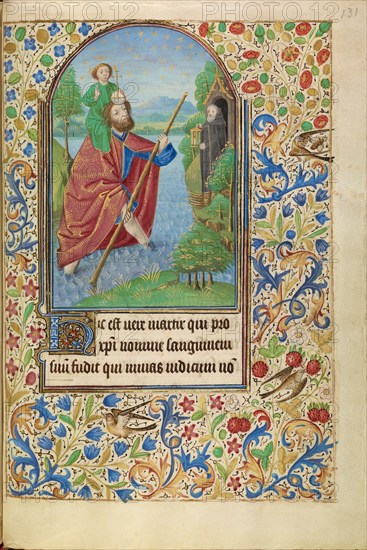 131
Hic est vere martir qui pro
xpi nomine sanguinem
suu fudit qui minas iudicum no
PHOTO12